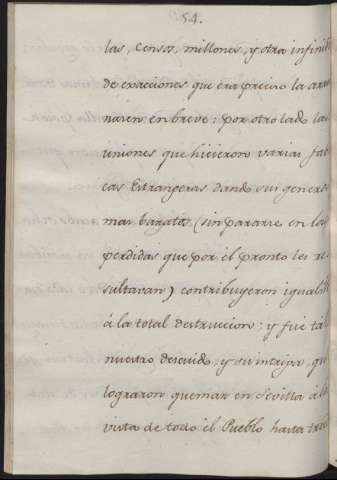 54.
las, censos, millones, y otra infini
de exacciones que era preciso la arru
nasen en breve; por otro lado las
uniones que hicieron varias fab
cas Extrangeras dando sus genero
mas baratos (sin pararse en las
perdidas que por el pronto les re
sultavan) contribuyeron igualm
á la total destruccion; y fue tal
nuestro descuido, y su intriga, qu
lograron quemar en Sevilla á la
vista de todo el Pueblo hasta